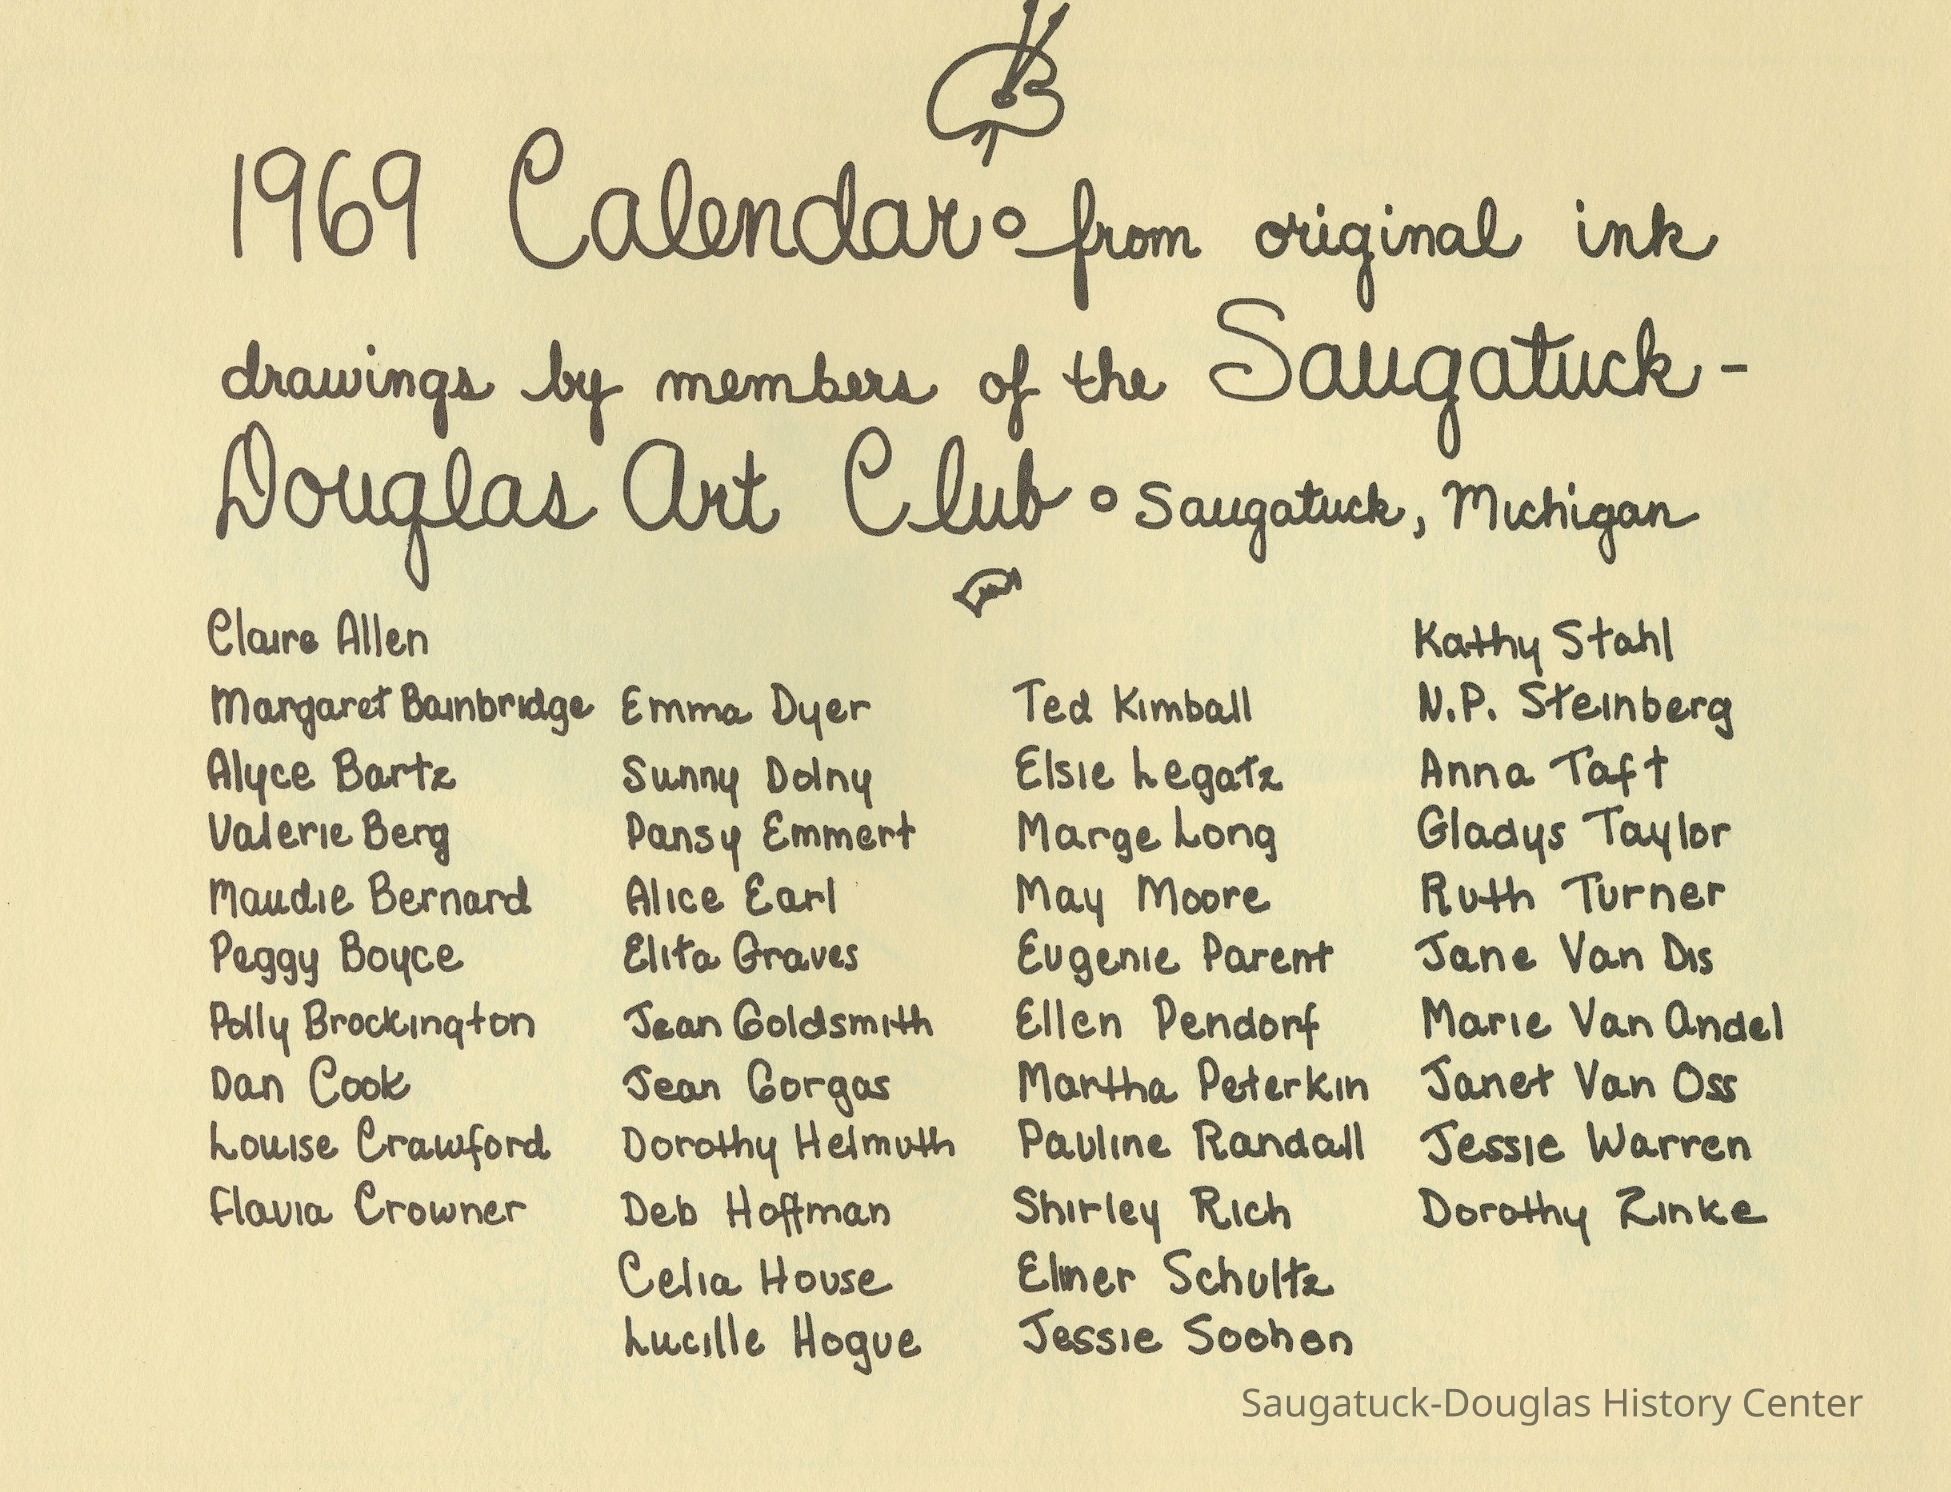 1969 Calendar • from original ink
drawings by members of the Saugatuck-
Douglas Art Club • Saugatuck, Michigan
Claire Allen
Margaret Bainbridge
Alyce Bartz
Valerie Berg
Maudie Bernard
Peggy Boyce
Polly Brockington
Dan Cook
Louise Crawford
Flavia Crowner
Emma Dyer
Sunny Dolny
Pansy Emmert
Alice Earl
Elita Graves
Jean Goldsmith
Jean Gorgas
Dorothy Helmuth
Deb Hoffman
Celia House
Lucille Hogue
Ted Kimball
Elsie Legatz
Marge Long
May Moore
Eugenie Parent
Ellen Pendorf
Martha Peterkin
Pauline Randall
Shirley Rich
Elmer Schultz
Jessie Soohen
Kathy Stahl
N.P. Steinberg
Anna Taft
Gladys Taylor
Ruth Turner
Jane Van Dis
Marie Van Andel
Janet Van Oss
Jessie Warren
Dorothy Zinke
Saugatuck-Douglas History Center